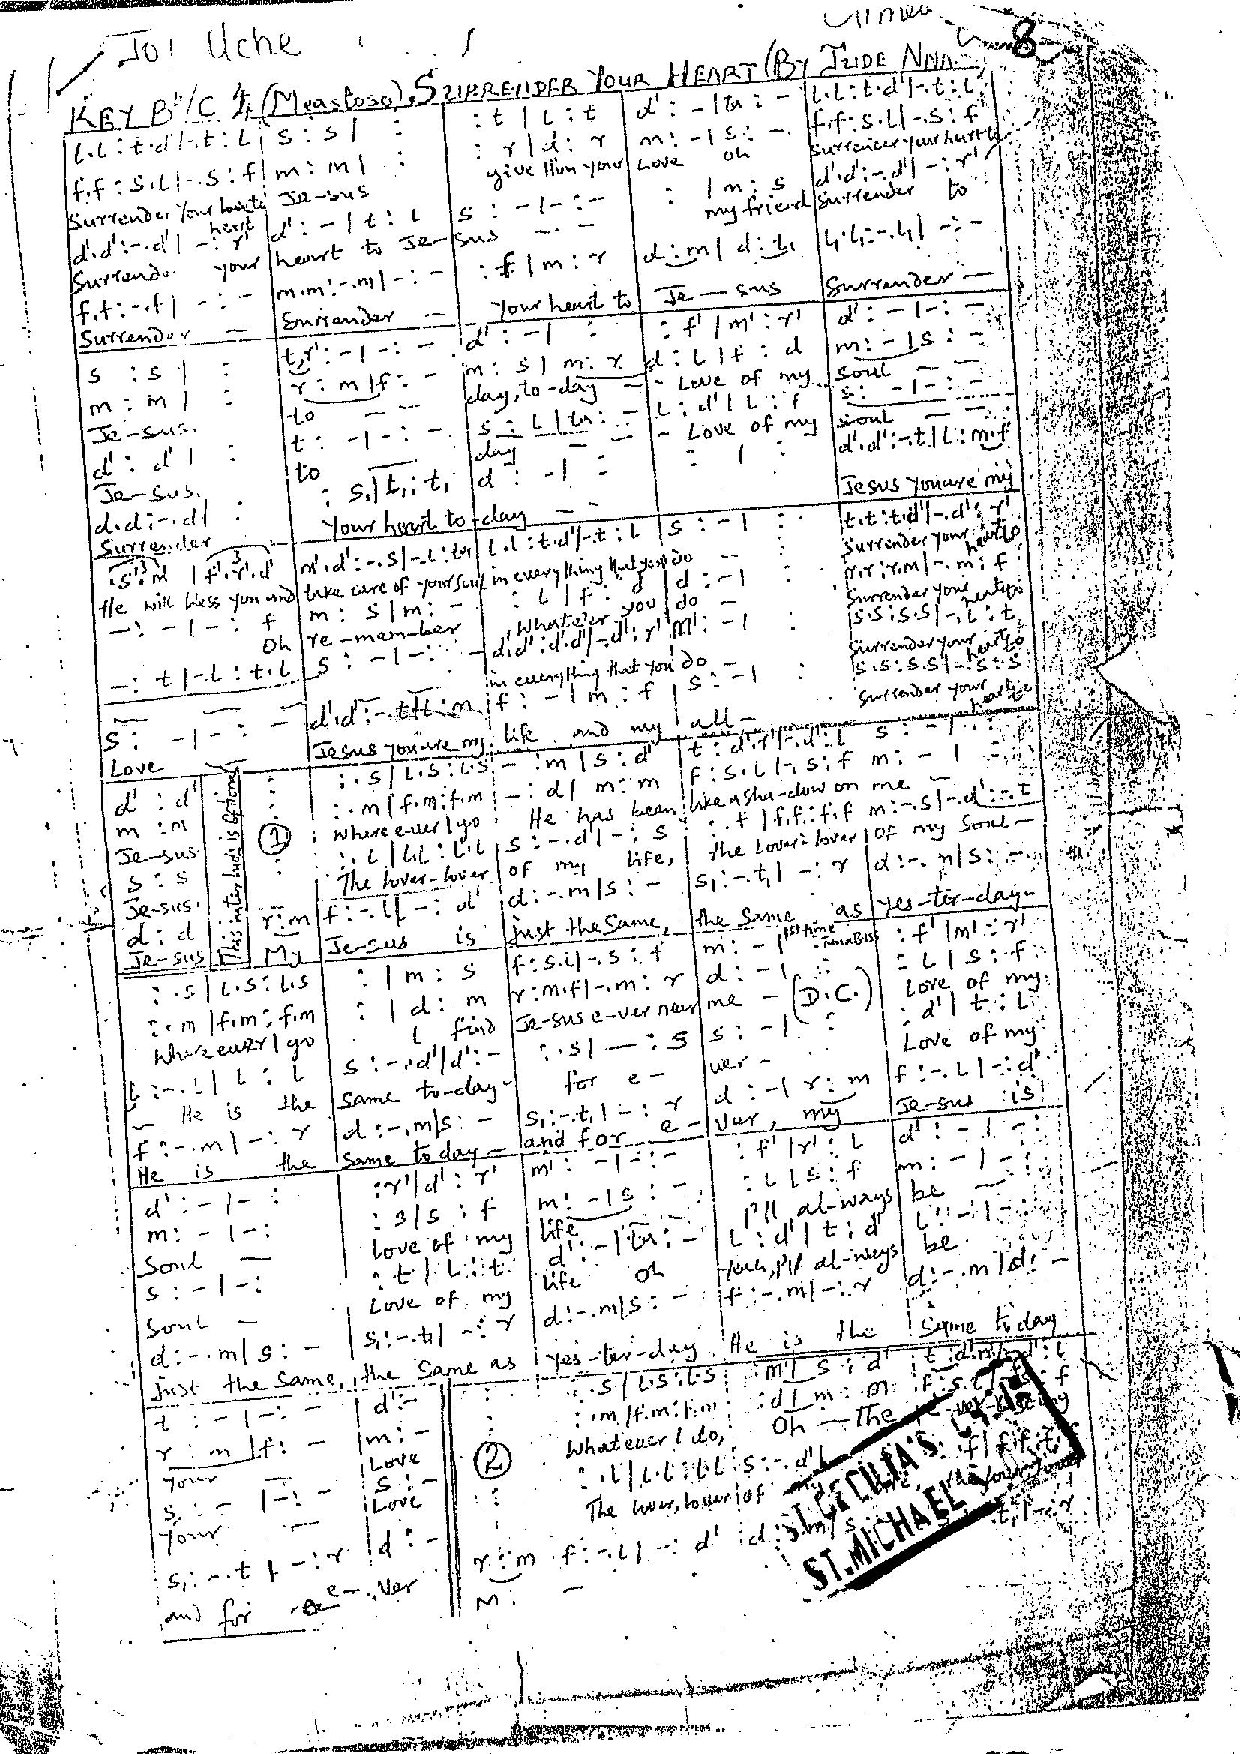 Jo! Uche
8
KEY Bb/C 4/4 (Meastoso). SURRENDER YOUR HEART (By JUDE NNA
l.l : t.d'|-.t : l | s : s | : | : t | l : t | d' : - | ta : - | l.l : t.d'|-.t : l
f.f : s.l|-.s : f | m : m | : | : r | d : r | m : - | s : - | f.f : s.l|-.s : f
Surrender your heart to Je-sus give Him your Love oh Surrender your heart to
d'.d' : -.d'| - : r' | d' : - | t : l | s : - | - : - | : | m : s | d'.d' : -.d'| - : r'
Surrender your heart to Je-sus - - my friend Surrender to
f.t : -.t| - : - | m.m : -.m| - : - | : f | m : r | d : m | d : l, | l,.l, : -.l,| - : -
Surrender - Surrender - Your heart to Je - sus Surrender -
s : s | : | t.r' : - | - : - | d' : - | : | : f' | m' : r' | d' : - | - : -
m : m | : | r : m | f : - | m : s | m : r | d : l | f : d | m : - | s : -
Je-sus. to - - day, to-day - - Love of my soul -
d' : d' | : | t : - | - : - | s : l | ta : - | l : d' | l : f | s : - | - : -
Je-sus. to - - day - - - Love of my soul - -
d.d : -.d| : | : s, | t, : t, | d : - | : | : | : | d'.d' : -.t | l : m.f
Surrender Your heart to-day - - Jesus you are my
: s'.m' | f'.r'.d' | m'.d' : -.s | -.l : ta | l.l : t.d'|-.t : l | s : - | : | t.t : t.d'|-.d' : r'
He will bless you and take care of your Soul in everything that you do - - Surrender your heart to
- : - | - : f | m : s | m : - | : l | f : d | d : - | : | r.r : r.m|-.m : f
Oh re-mem-ber , whatever you do - Surrender your heart to
- : t | -.l : t.l | s : - | - : - | d'.d' : d'.d'|-.d' : r' | m' : - | : | s.s : s.s|-.l : t,
- - - - in everything that you do - Surrender your heart to
s : - | - : - | d'.d' : -.t | t : m | f : - | m : f | s : - | : | s.s : s.s|-.s : s
Love Jesus you are my life and my all - Surrender your heart to
d' : d' | : | : .s | l.s : l.s | - : m | s : d' | t : d'.r'|-.d' : l | s : - | - :
m : m | : | : .m | f.m : f.m | - : d | m : m | f : s.l|-.s : f | m : - | - :
Je-sus This interlude is optional ① where ever I go He has been like a sha-dow on me -
s : s | : | : .l | l.l : l.l | s : -.d | - : s | : .t | f.f : f.f | m : -.s|-.d' : -.t
Je-sus. The lover-lover of my life, the lover-lover of my Soul -
d : d | r : m | f : -.l | - : d' | d : -.m | s : - | s, : -.t, | - : r | d : -.m | s : -
Je-sus My Je-sus is just the Same, the same as yes-ter-day-
: .s | l.s : l.s | : | m : s | f : s.l|-.s : f | m : - | 1st time : f' | m' : r'
: .m | f.m : f.m | : | d : m | r : m.f|-.m : r | d : - | : | : l | s : f
Where ever I go I find Je-sus e-ver near me - (D.C.) Love of my
l : -.l | l : l | s : -.d' | d' : - | : .s | - : s | s : - | : | : d' | t : l
- He is the same to-day- for e - ver - Love of my
f : -.m | - : r | d : -.m | s : - | s, : -.t, | - : r | d : - | r : m | f : -.l | - : d'
He is the same to day - and for e - ver, my Je-sus is
d' : - | - : | : r' | d' : r' | m' : - | - : - | : f' | r' : l | d' : - | - :
m : - | - : | : s | s : f | m : - | s : - | : l | s : f | m : - | - :
Soul - love of my life - I'll al-ways be -
s : - | - : | : t | l : t | d' : - | ta : - | l : d' | t : d' | l : - | - :
Soul - Love of my life oh I'll al-ways be
d : -.m | s : - | s, : -.t, | - : r | d : -.m | s : - | f : -.m | - : r | d : -.m | d : -
just the same, the same as yes-ter-day He is the same to day
t : - | - : - | d' : - | : | : .s | l.s : l.s | : m | s : d' | t : d'.r'|-.d' : l
r : m | f : - | m : - | : | : .m | f.m : f.m | : d | m : m | f
your - Love ② Whatever I do, Oh - The
s, : - | - : - | s : - | : | : .l | l.l : l.l | s : -.d
Your - Love The lover, lover of
s, : -.t | - : r | d : - | r : m | f : -.l | - : d' | d
and for e-.ver m : -
ST. CECILIA'S
ST. MICHAEL